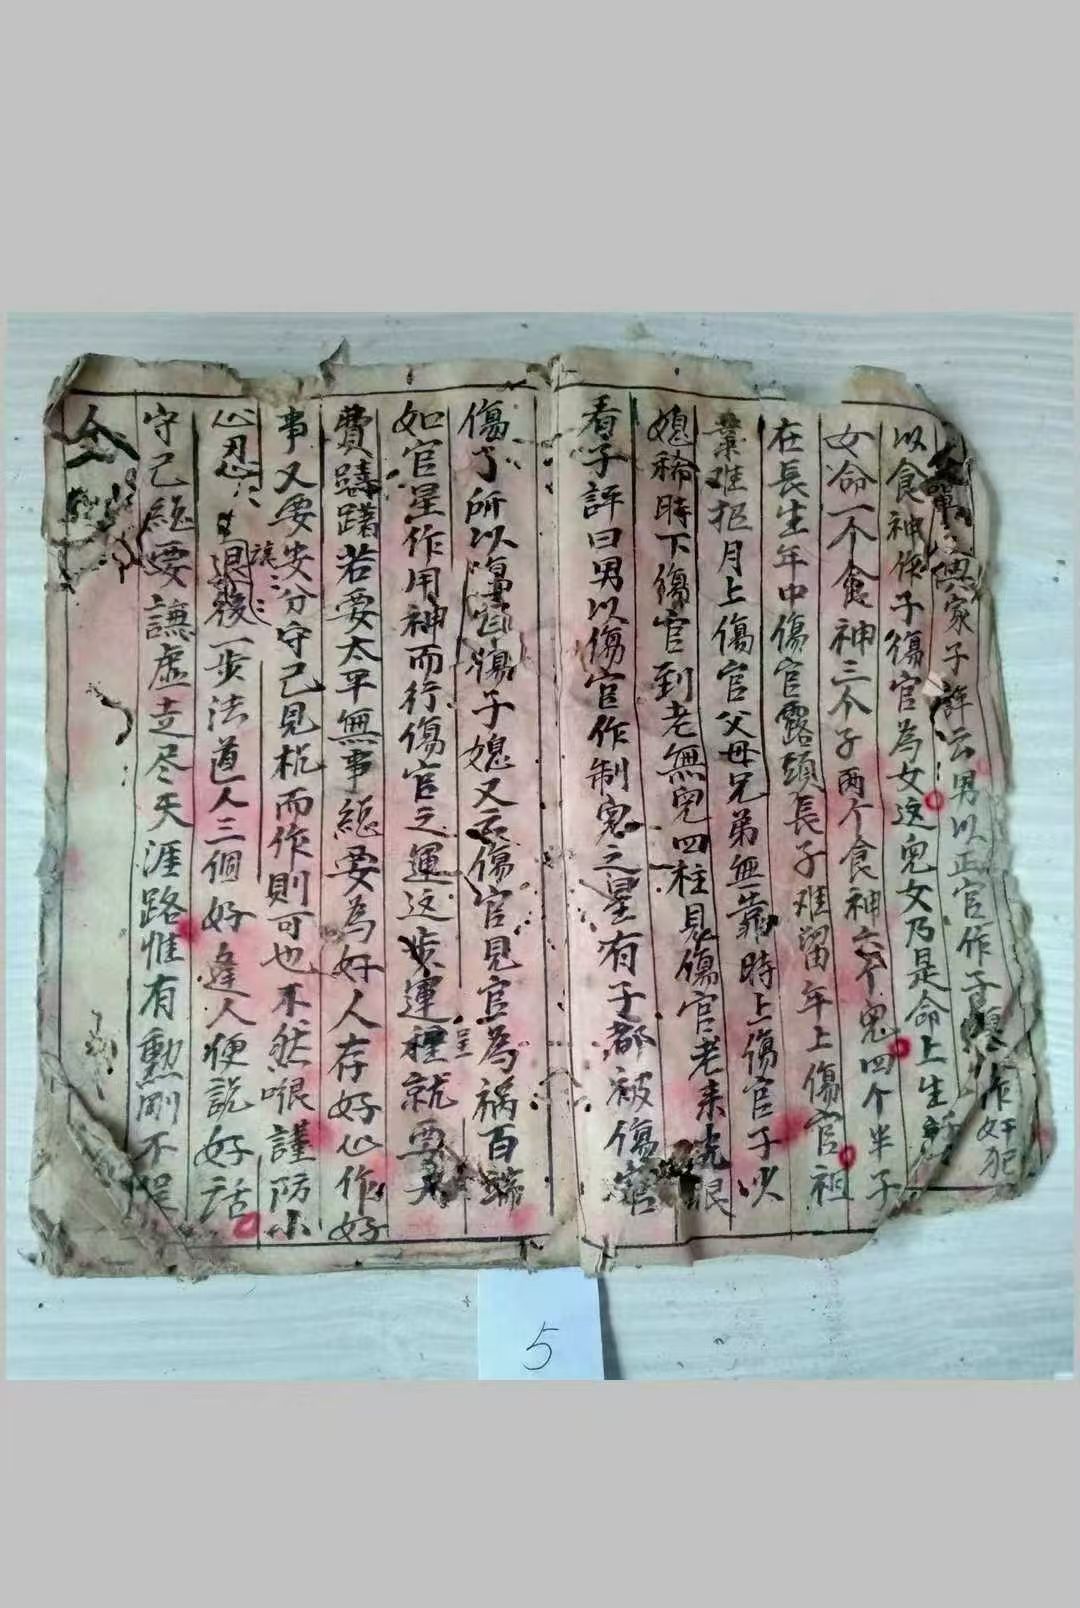 家子評云男以正官作子
作奸犯
以食神作子傷官為女这児女乃是命上生
女命一个食神三个子两个食神六个児四个半子
在長生年中傷官露頭長子难留年上傷官祖
業难招月上傷官父母兄弟無靠時上傷官子火
媳稀時下傷官到老無児四柱見傷官老来
看子評曰男以傷官作制鬼之星有子都被傷官
傷了所以傷官傷子媳又云傷官見官為禍百端
如官星作用神而行傷官之運这歩運程就要大
費躊躇若要太平無事縂要為好人存好心作好
事又要安分守己見机而作則可也不然很謹防小
心忍讓退後一步法道人三個好逢人便說好話
守己縂要謙虚走尽天涯路惟有勲剛不
5